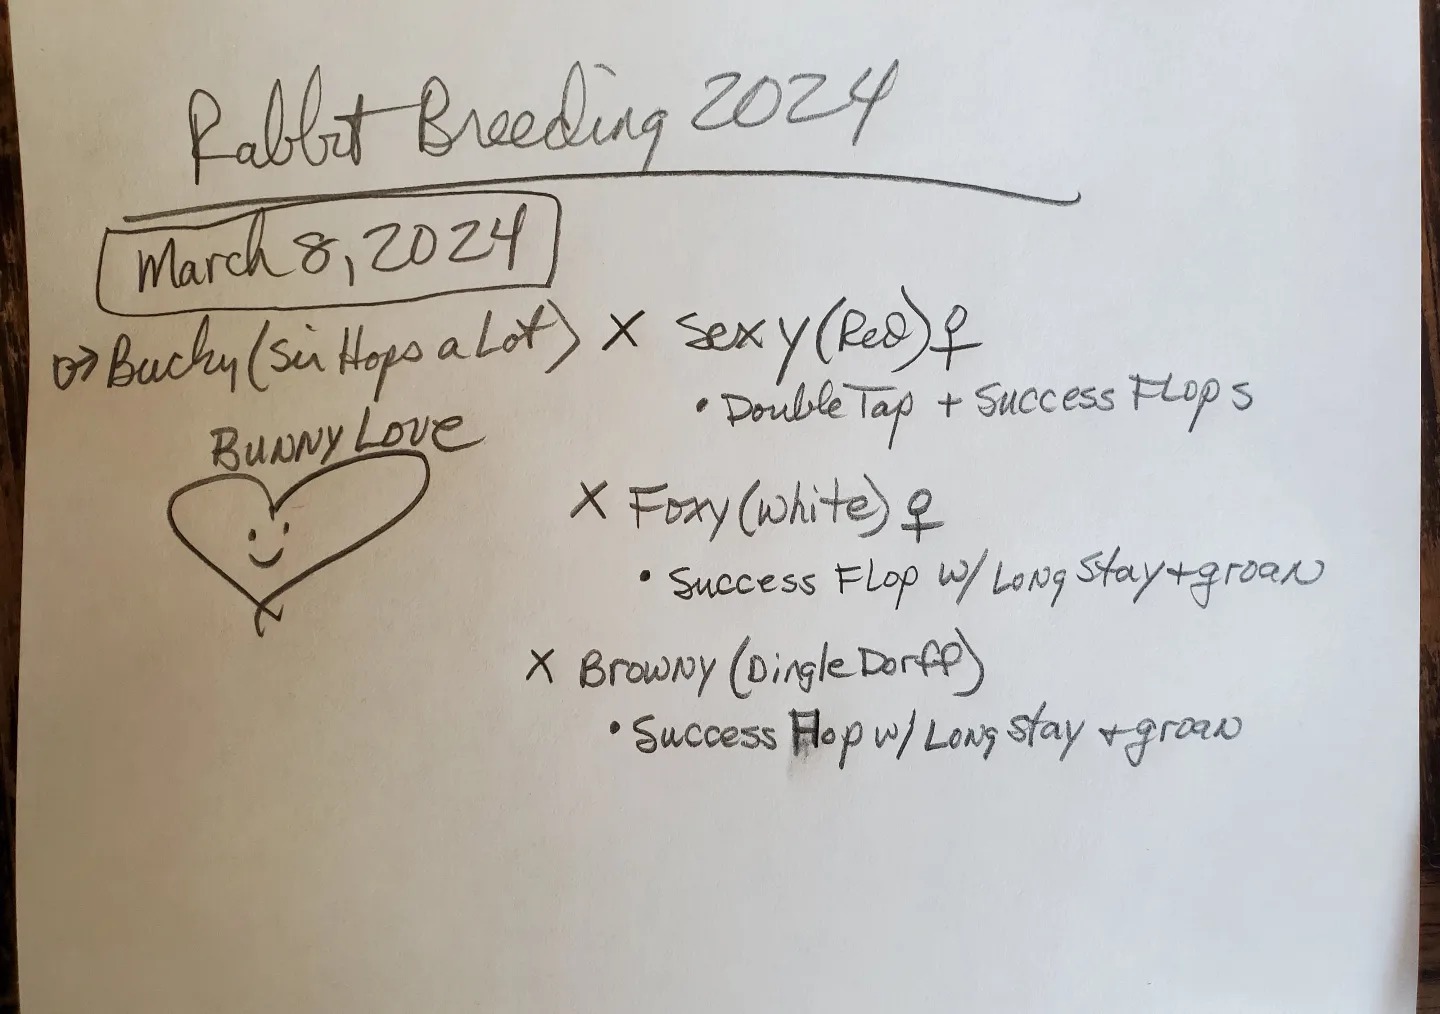 Rabbit Breeding 2024
March 8, 2024
♂ Bucky (Sir Hops a Lot) X Sexy (Red) ♀
• Double Tap + Success Flops
Bunny Love
X Foxy (White) ♀
• Success Flop w/ Long Stay + groan
X Browny (Dingle Dorff)
• Success Flop w/ Long Stay + groan